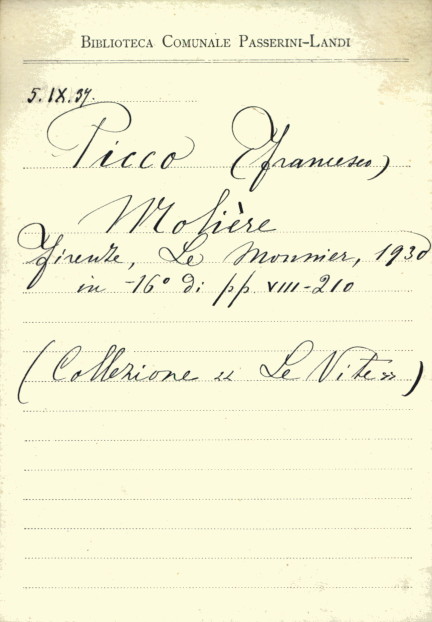 BIBLIOTECA COMUNALE PASSERINI-LANDI
5.IX.37.
Picco (Francesco)
Molière
Firenze, Le Monnier, 1930
in -16° di pp VIII-210
(Collezione « Le Vite »)